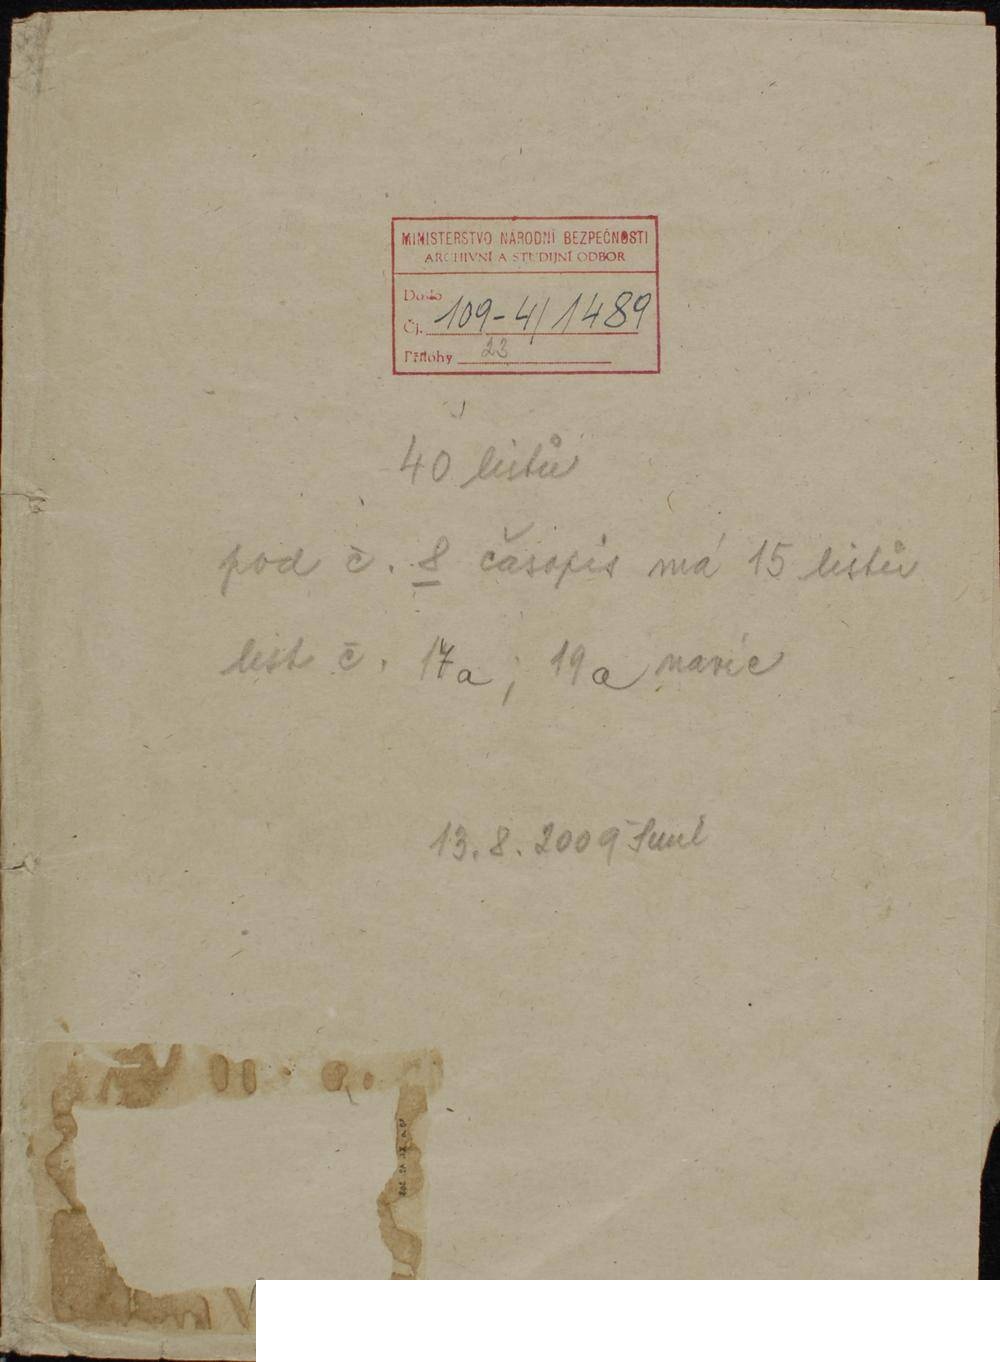 MINISTERSTVO NÁRODNÍ BEZPEČNOSTI
ARCHIVNÍ A STUDIJNÍ ODBOR
Došlo
Čj. 109-4/1489
Přílohy 23
40 listů
pod č. 8 časopis má 15 listů
list č. 17a; 19a navíc
13.8.2009